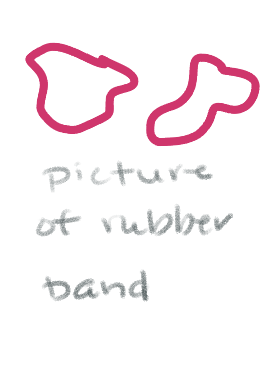 picture
of rubber
band